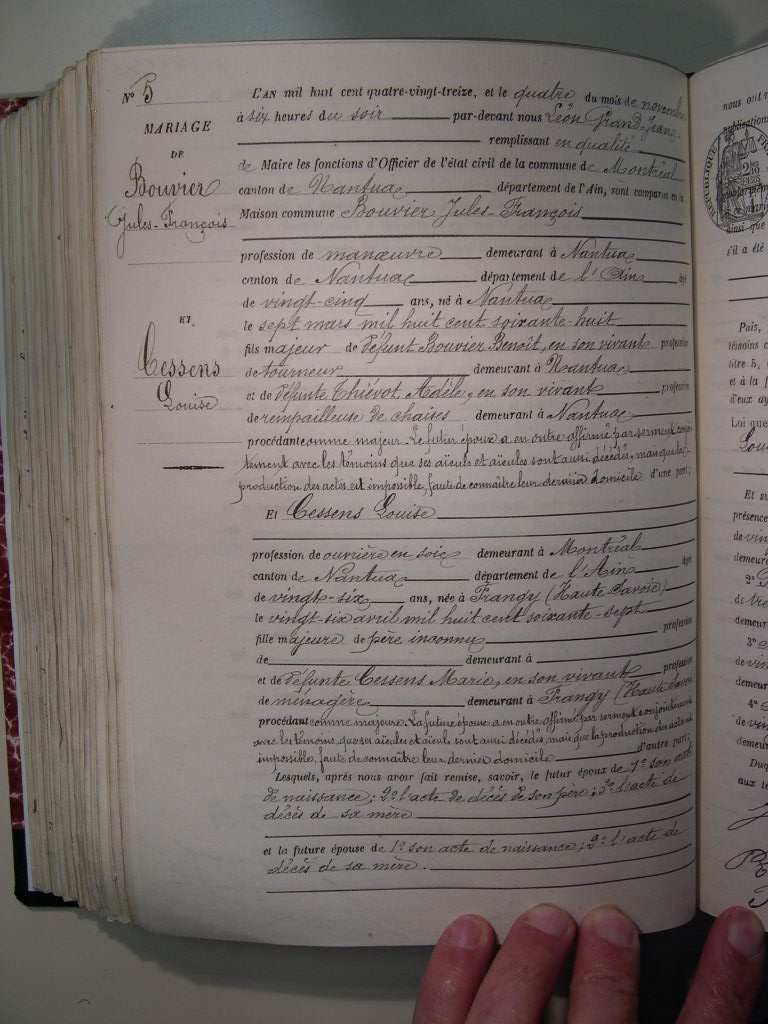 No 5
MARIAGE
DE
Bouvier
Jules-François
ET
Cessens
Louise
L'AN mil huit cent quatre-vingt-treize, et le quatre du mois de novembre
à six heures du soir par-devant nous Léon Grand-
remplissant en qualité
de Maire les fonctions d'Officier de l'état civil de la commune de Montréal
canton de Nantua département de l'Ain, sont comparus en la
Maison commune Bouvier Jules-François
profession de manœuvre demeurant à Nantua
canton de Nantua département de l'Ain âgé
de vingt-cinq ans, né à Nantua
le sept mars mil huit cent soixante-huit
fils majeur de défunt Bouvier Benoît, en son vivant profession
de tourneur demeurant à Nantua
et de défunte Thiévot Adèle, en son vivant profession
de rempailleuse de chaises demeurant à Nantua
procédant comme majeur. Le futur époux a en outre affirmé par serment conjoin
tement avec les témoins que ses aïeuls et aïeules sont aussi décédés, mais que la
production des actes est impossible, faute de connaître leur dernier domicile d'une part;
Et Cessens Louise
profession de ouvrière en soie demeurant à Montréal
canton de Nantua département de l'Ain âgée
de vingt-six ans, née à Frangy (Haute Savoie)
le vingt-six avril mil huit cent soixante-sept
fille majeure de père inconnu profession
de demeurant à
et de défunte Cessens Marie, en son vivant profession
de ménagère demeurant à Frangy (Haute Savoie
procédant comme majeure. La future épouse a en outre affirmé par serment conjointement
avec les témoins, que ses aïeules et aïeuls sont aussi décédés, mais que la production des actes est
impossible, faute de connaître leur dernier domicile d'autre part;
Lesquels, après nous avoir fait remise, savoir, le futur époux de 1o son acte
de naissance; 2o l'acte de décès de son père; 3o l'acte de
décès de sa mère
et la future épouse de 1o son acte de naissance; 2o l'acte de
décès de sa mère.
nous ont r
publication
REPUBLIQUE
25
ainsi que
s'il a été
Puis,
témoins c
titre 5,
et à la f
d'eux ay
Loi que
Lou
Et su
présence
de vin
demeura
2o
de tre
demeur
3o
de vin
demeur
4o
de ving
demeur
Duq
aux te